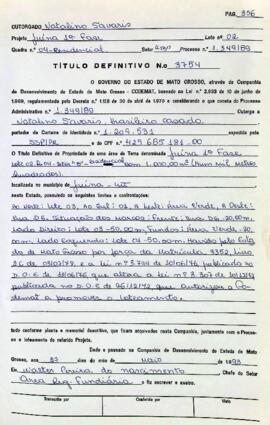 PAG. 356
OUTORGADO Natalino Savaris
Projeto Juína 1ª Fase Lote nº 02
Quadra n.º 04-Residencial Setor Processo n.º 1.349/89
TÍTULO DEFINITIVO N.o 3754
O GOVERNO DO ESTADO DE MATO GROSSO, através da Companhia
de Desenvolvimento do Estado de Mato Grosso - CODEMAT, baseado na Lei n.º 2.933 de 10 de junho de
1969, regulamentado pelo Decreto n.º 1.128 de 30 de abril de 1970 e considerando o que consta do Processo
Administrativo n.º 1.349/89 Outorga a
Natalino Savaris, brasileiro casado
portador da Carteira de Identidade n.º 1.209.531 expedida pela
SSP/PR e do CPF n.º 423 685 181-00
O Título Definitivo de Propriedade de uma área de Terra denominada Juína 1ª Fase
Residencial com 1.000,00 m² (Hum mil metros
quadrados)
localizada no município de Juína-MT
neste Estado, possuindo os seguintes limites e confrontações:
Ao Norte: Lote 03, Ao Sul: 02, A Leste: Área Verde, A Oeste:
Rua 06. Situação dos marcos: Frente: Rua 06-20,00m.
Lado Direito: Lote 03-50,00m, Fundos: Área Verde-20,
00m. Lado Esquerdo: Lote 04-50,00m. Havido pelo Esta
do de Mato Grosso por força da Matrícula 3352, Livro
publicada no
D.O.E de que altera a lei nº 3.307 de
publicada no D.O.E de 26/12/72 que autorizou a Co
demat a promover o loteamento.
tudo conforme planta e memorial descritivo, que ficam arquivados nesta Companhia, juntamente com o Processo
e loteamento do referido Projeto.
Dado e passado na Companhia de Desenvolvimento do Estado de Mato
Grosso, aos de Maio de 1993
Eu Walter Pereira do Nascimento Chefe do Setor
Área Reg. Fundiária o fiz escrever e assino.
Transcrito por Conferido por Visto